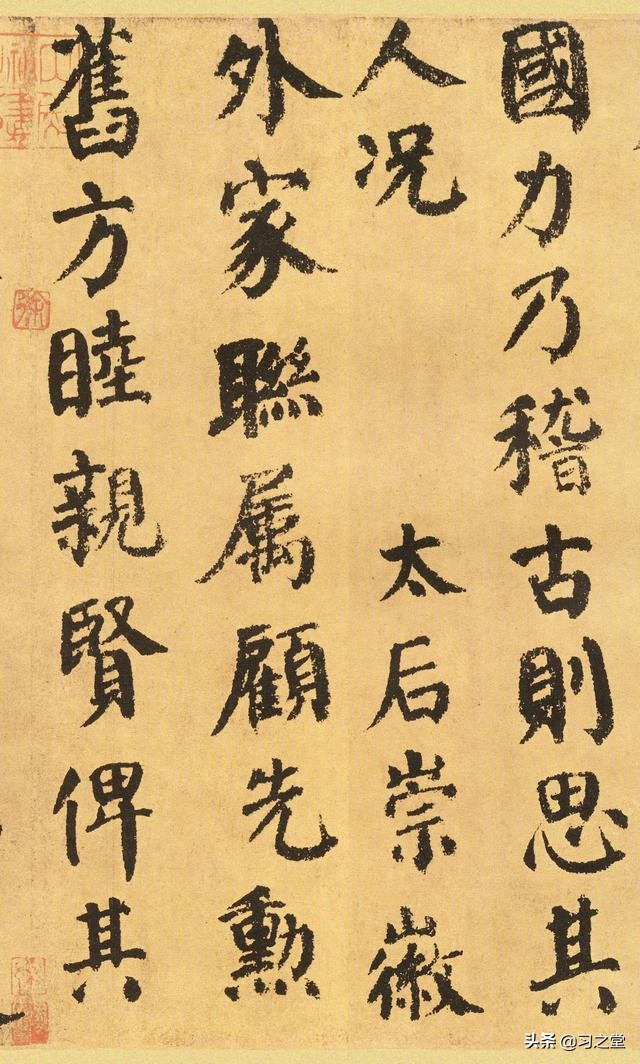 國力乃稽古則思其
人况 太后崇徽
外家聯属顧先勲
舊方睦親賢俾其
头条 @习之堂